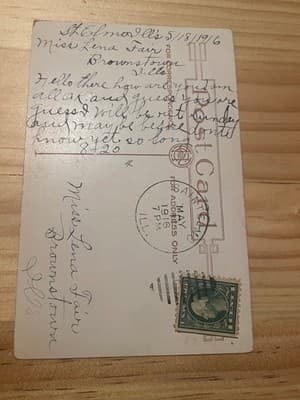 St Elmo Ill's 5/18/1916
Miss Lena Fair
Brownstown
Ills
Hello there how are you
all ok and guess you are
guess I will be out Sunday
and maybe before dont
know yet so long
8420
Post Card
FOR ADDRESS ONLY
MAY
1916
7 PM
ILL.
Miss Lena Fair
Brownstown
Ills